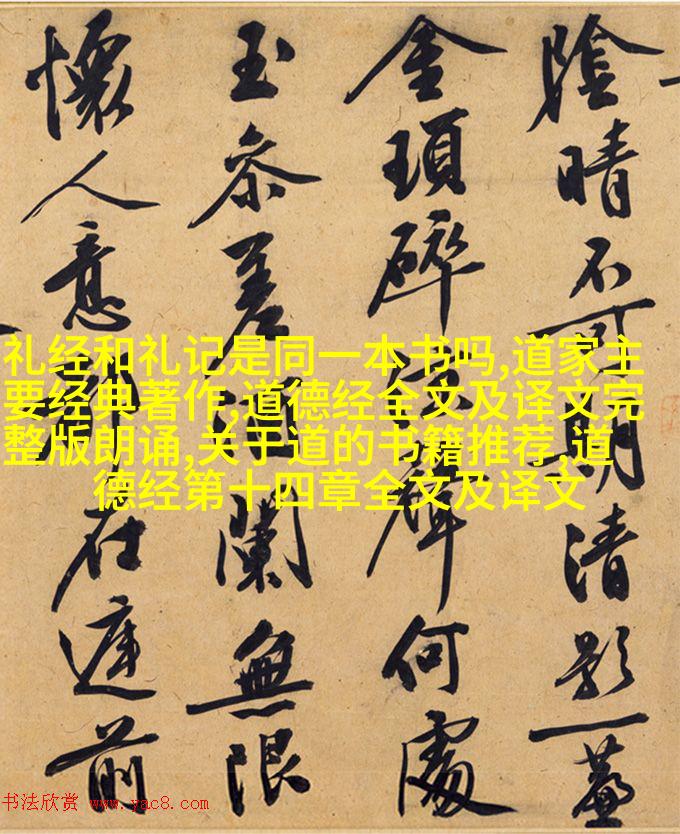 陰晴不可期清影一
金瑣碎何處
玉參差酒闌無限
懷人意都在庭前
礼经和礼记是同一本书吗,道家主
要经典著作,道德经全文及译文完
整版朗诵,关于道的书籍推荐,道
德经第十四章全文及译文
书法欣赏 www.yac8.com